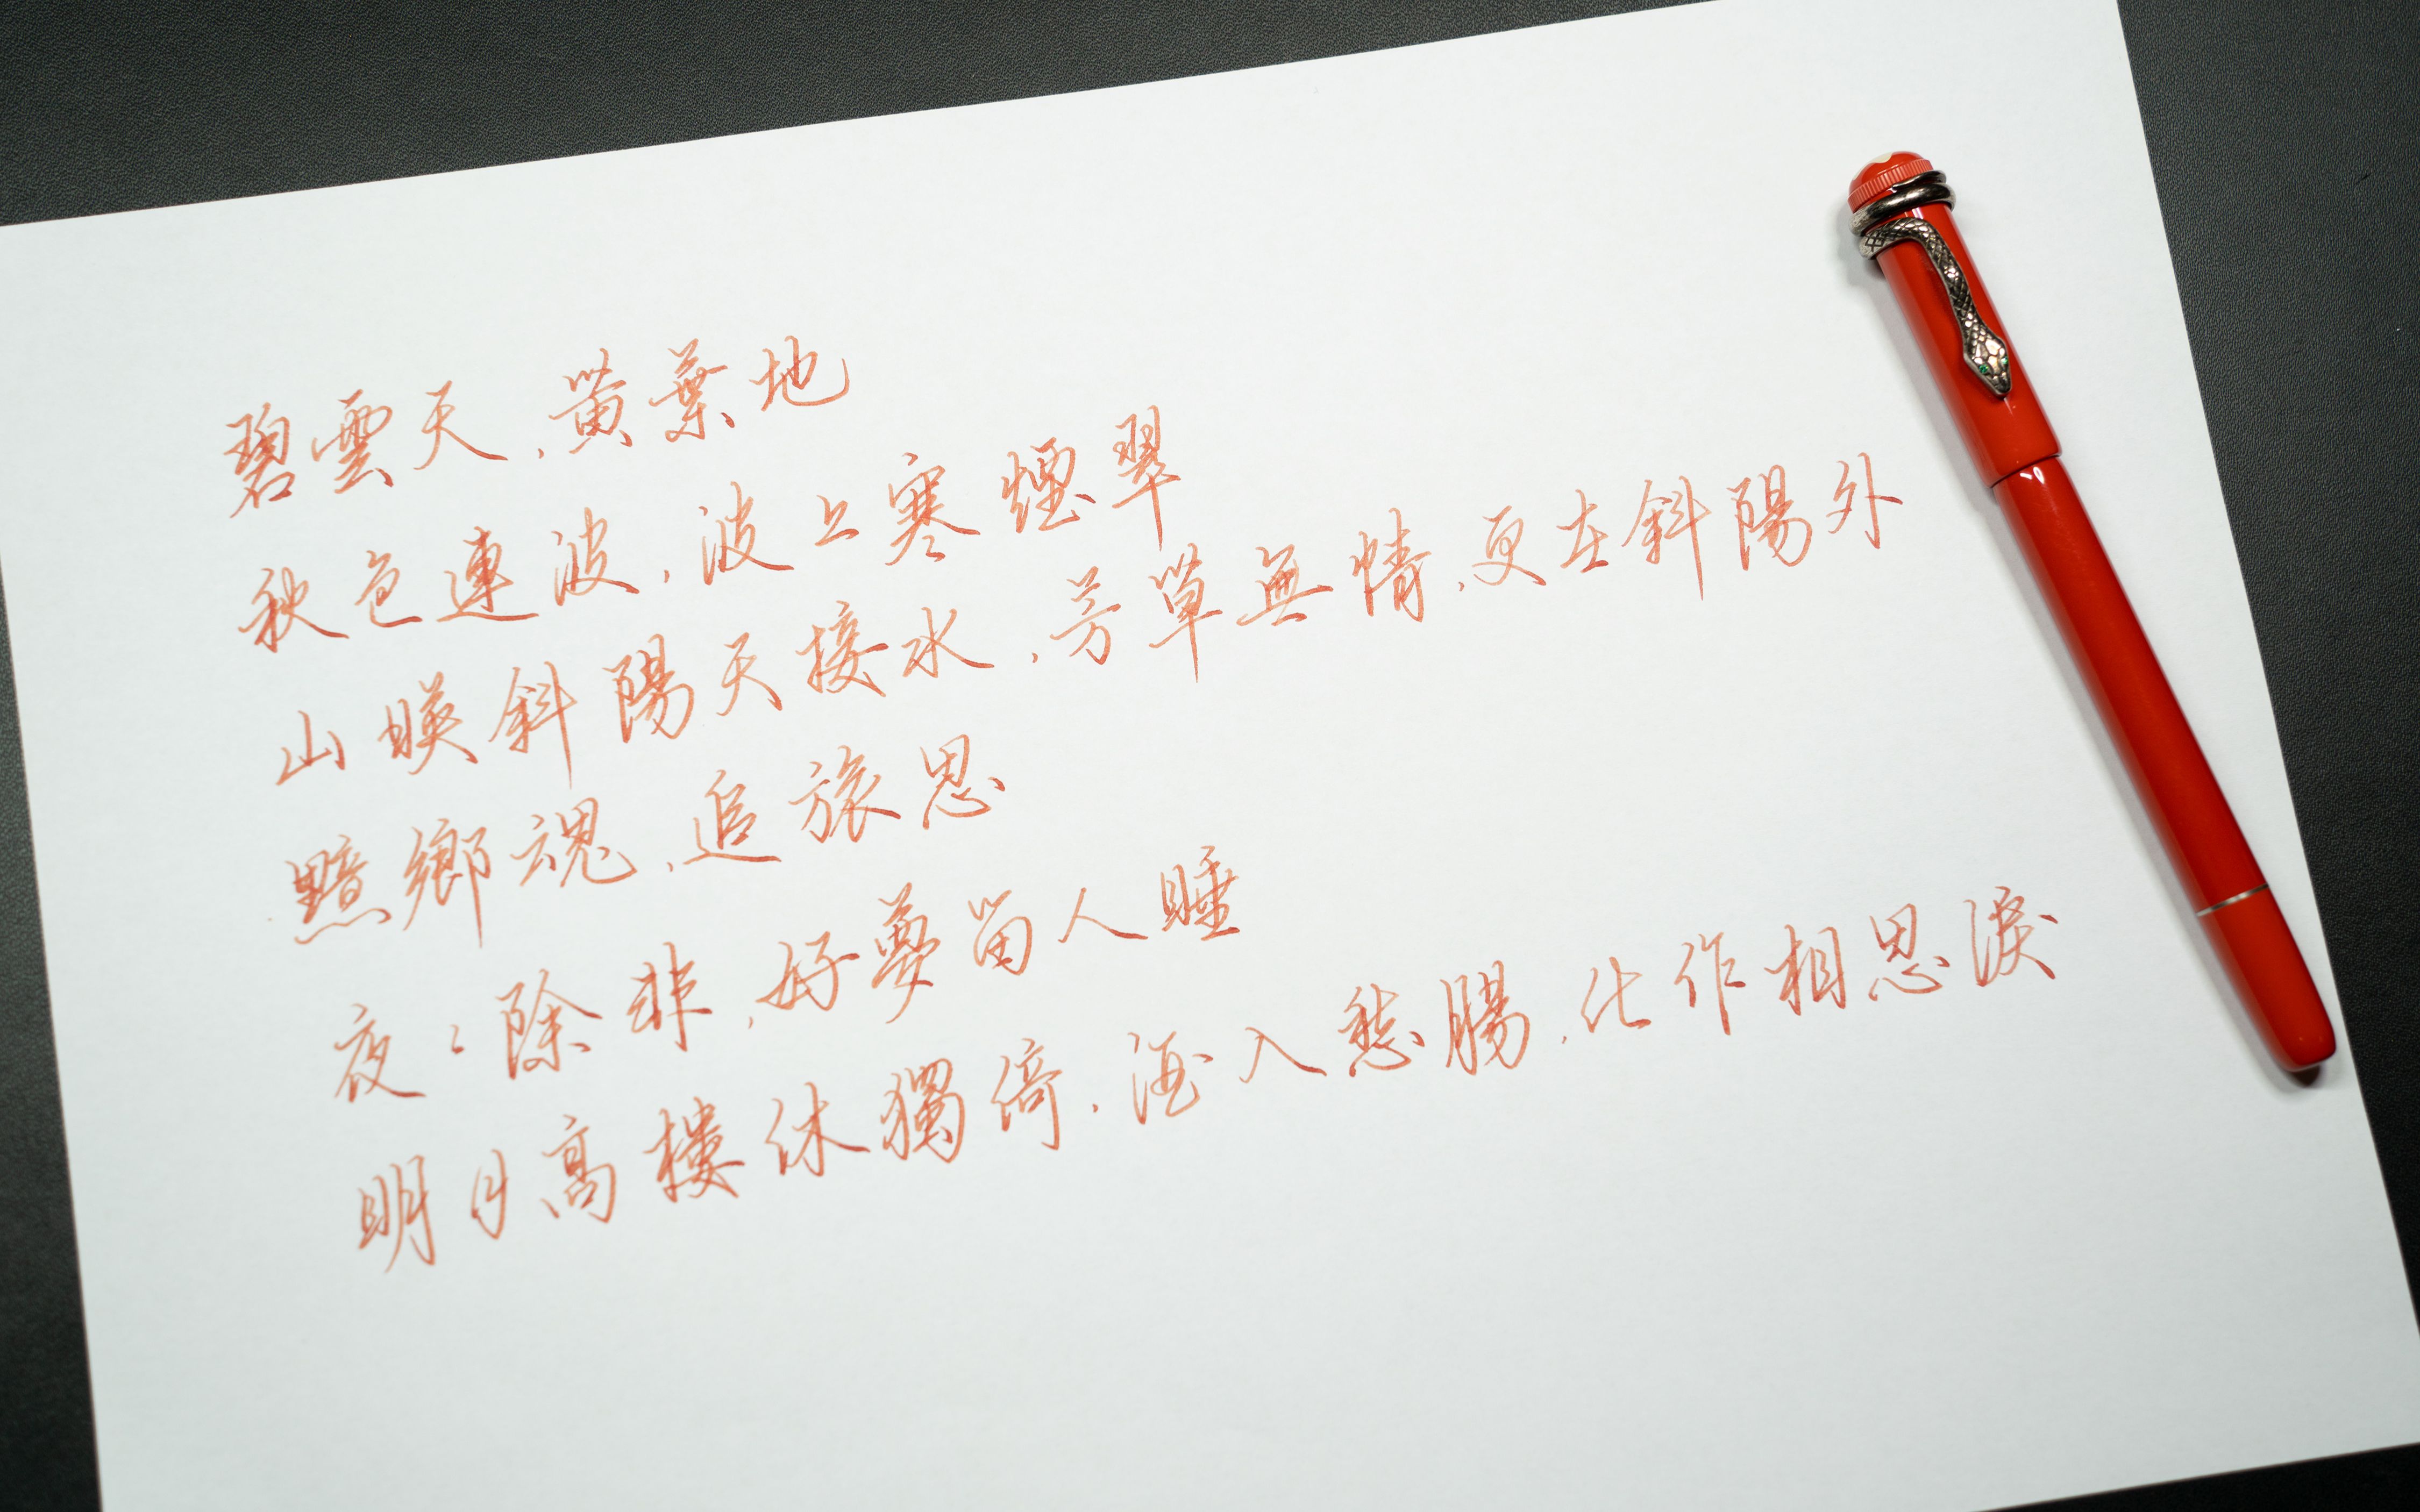 碧雲天，黃葉地
秋色連波，波上寒煙翠
山暎斜陽天接水，芳草無情，更在斜陽外
黯鄉魂，追旅思
夜〻除非，好夢留人睡
明月高樓休獨倚，酒入愁腸，化作相思淚